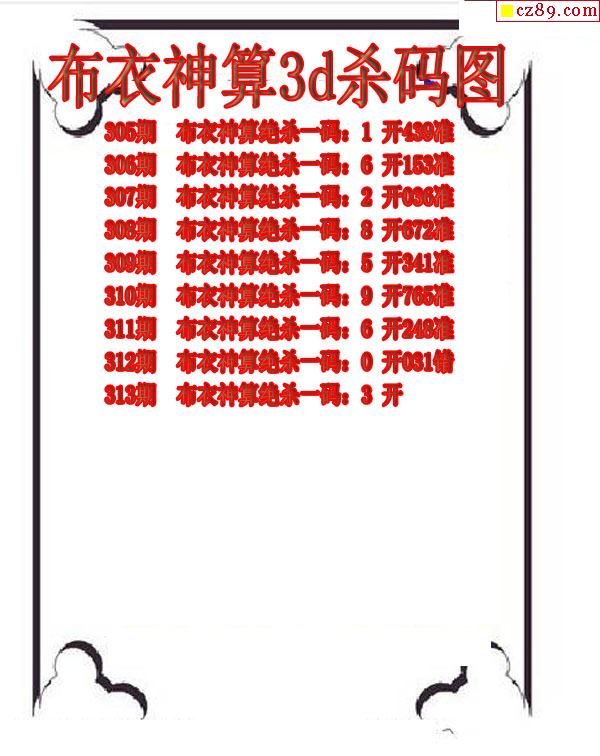 cz89.com
布衣神算3d杀码图
305期 布衣神算绝杀一码：1 开439准
306期 布衣神算绝杀一码：6 开153准
307期 布衣神算绝杀一码：2 开036准
308期 布衣神算绝杀一码：8 开672准
309期 布衣神算绝杀一码：5 开341准
310期 布衣神算绝杀一码：9 开765准
311期 布衣神算绝杀一码：6 开248准
312期 布衣神算绝杀一码：0 开031错
313期 布衣神算绝杀一码：3 开